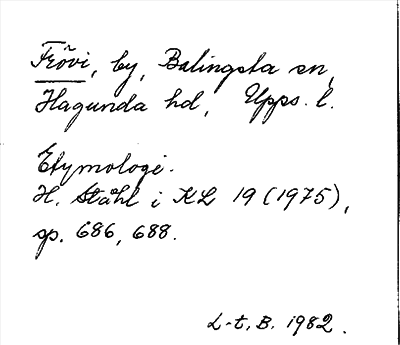 Frövi, by, Balingsta sn,
Hagunda hd, Upps. l.
Etymologi.
H. Ståhl i KL 19 (1975),
sp. 686, 688.
L-t, B. 1982.